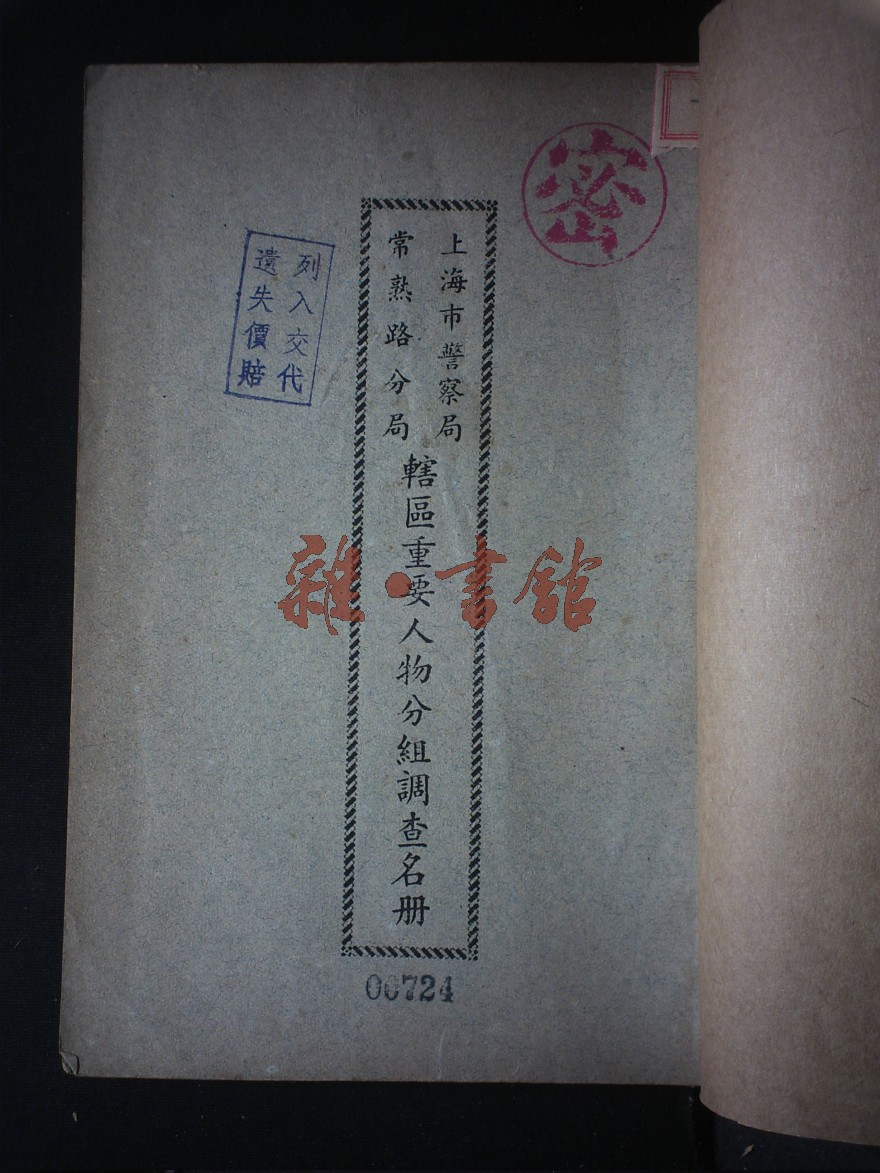 密
上海市警察局
常熟路分局
轄區重要人物分組調查名册
列入交代
遺失價賠
00724
雜·書館